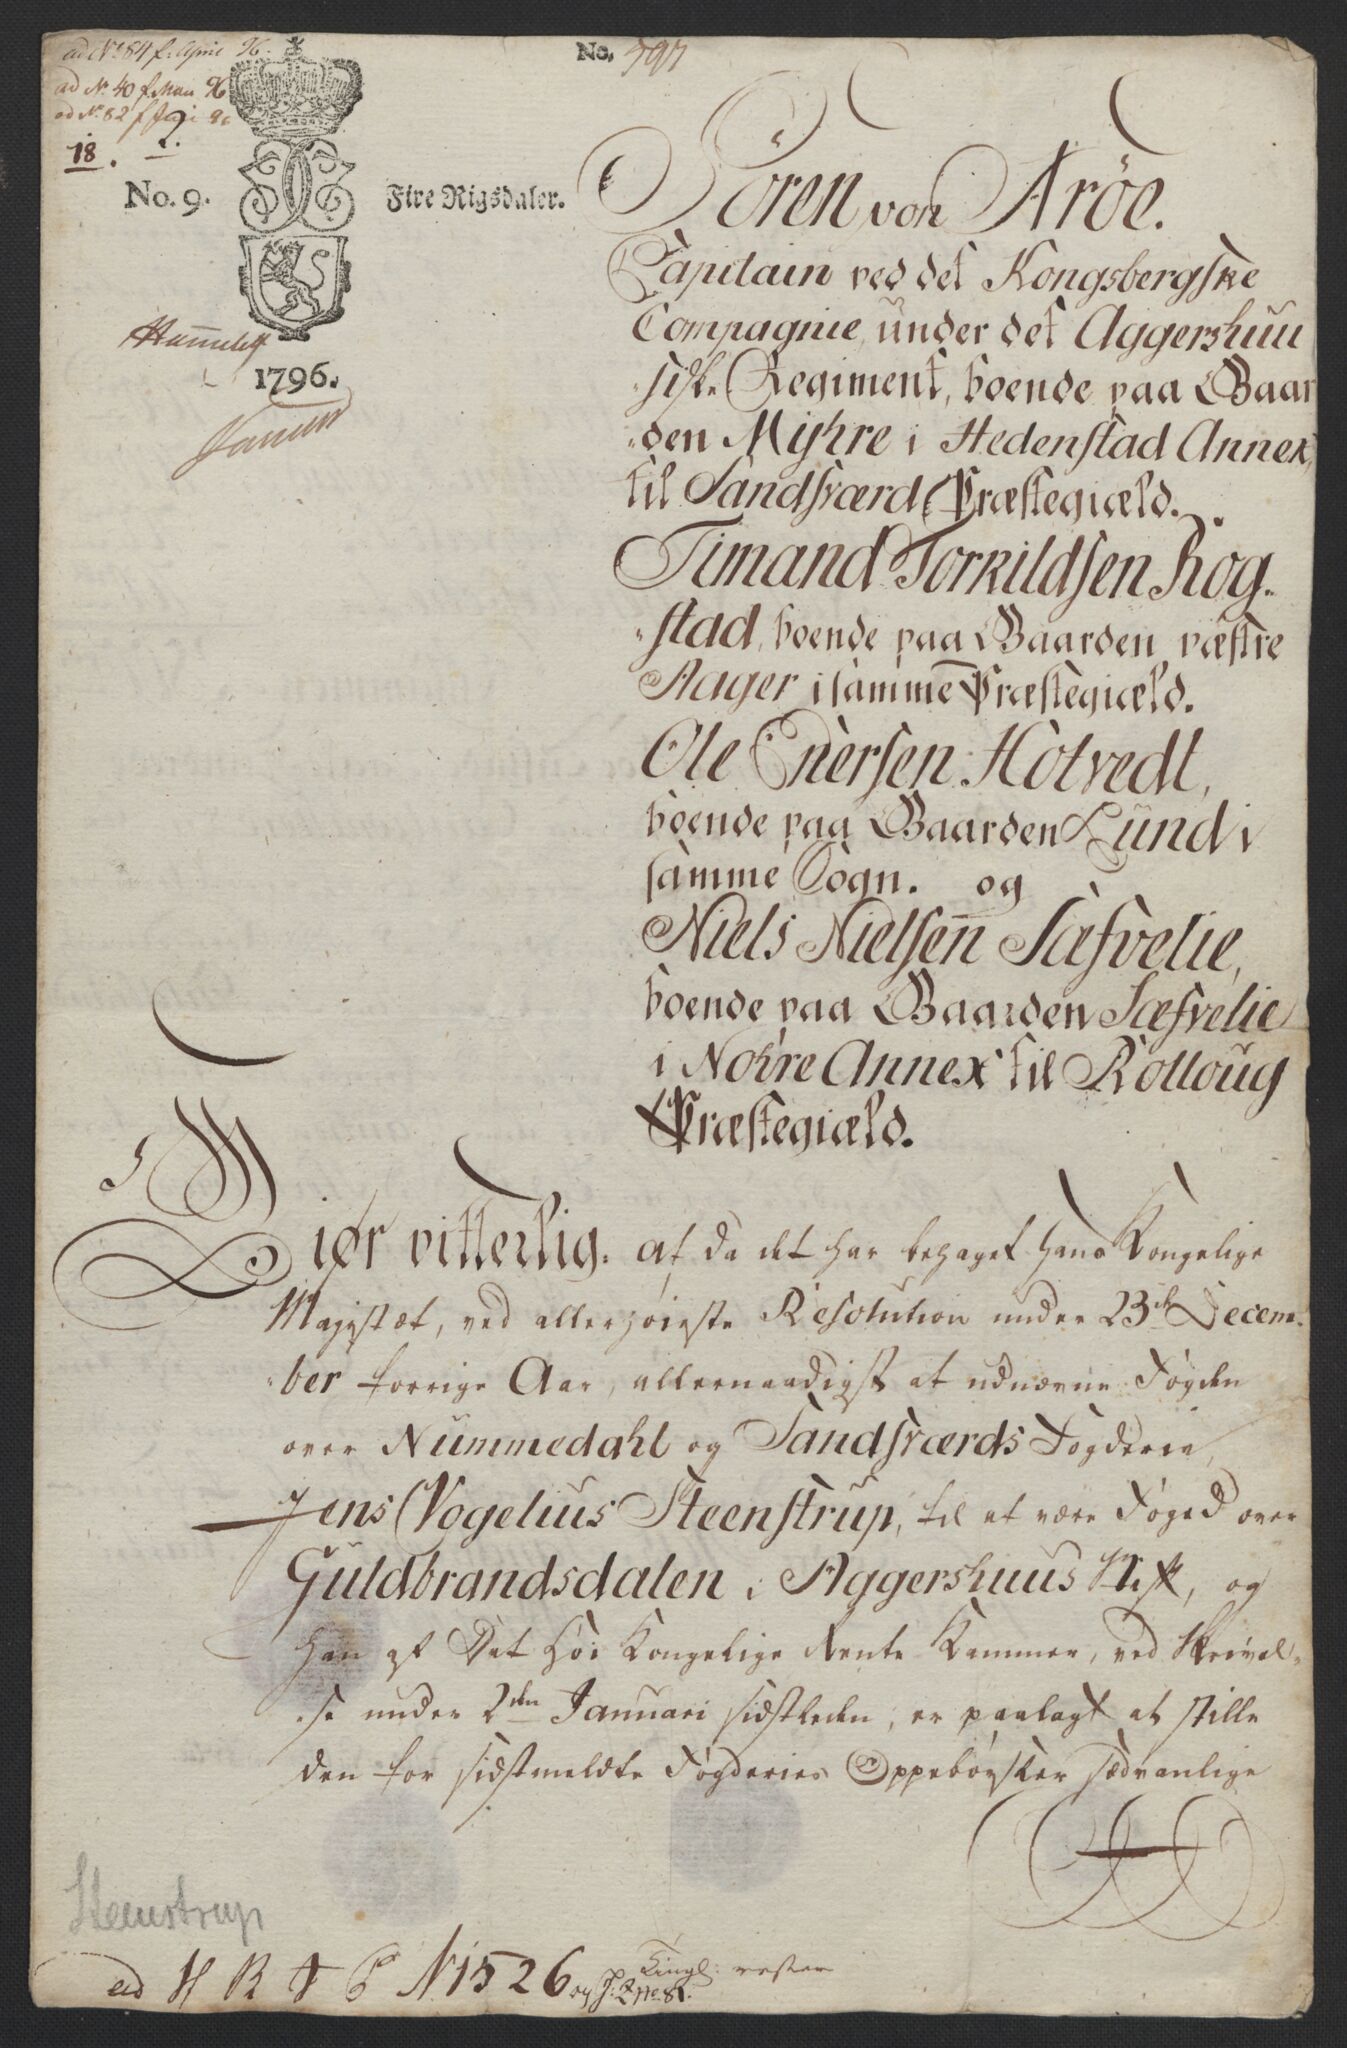 ad No 84 f. April 96.
ad No. 40 f. Maii 96
ad No. 82 f Juni 96
18. 2.
No. 797
No. 9.
Fire Rigsdaler.
1796.
Sören von Aröe.
Capitain ved det Kongsbergske
Compagnie under det Aggershuu
siske Regiment, boende paa Gaar
den Myhre i Hedenstad Annex,
til Sandsværd Præstegiæld.
Timand Torkildsen Rog-
stad, boende paa Gaarden væstre
Aager i samme Præstegiæld.
Ole Enersen Hotvedt,
boende paa Gaarden Lund i
samme Sogn. og
Niels Nielsen Sæfvelie,
boende paa Gaarden Sæfvelie
i Nohre Annex til Rolloug
Præstegiæld.
Giør vitterlig: at da det har behaget Hans Kongelige
Majestæt, ved allerhöieste Resolution under 23de Decem-
ber forrige Aar, allernaadigst at udnævne Fogden
over Nummedahl og Sandsværds Fogderie,
Jens Vogelius Steenstrup, til at være Foged over
Guldbrandsdalen i Aggershuus Stift, og
han af Det Höi Kongelige Rente Kammer, ved Skrivel-
se under 2den Januari sidstleden, er paalagt at stille
den for sidstmeldte Fogderies Oppebörsler sædvanlige
Steenstrup
ad H R T C No 1526